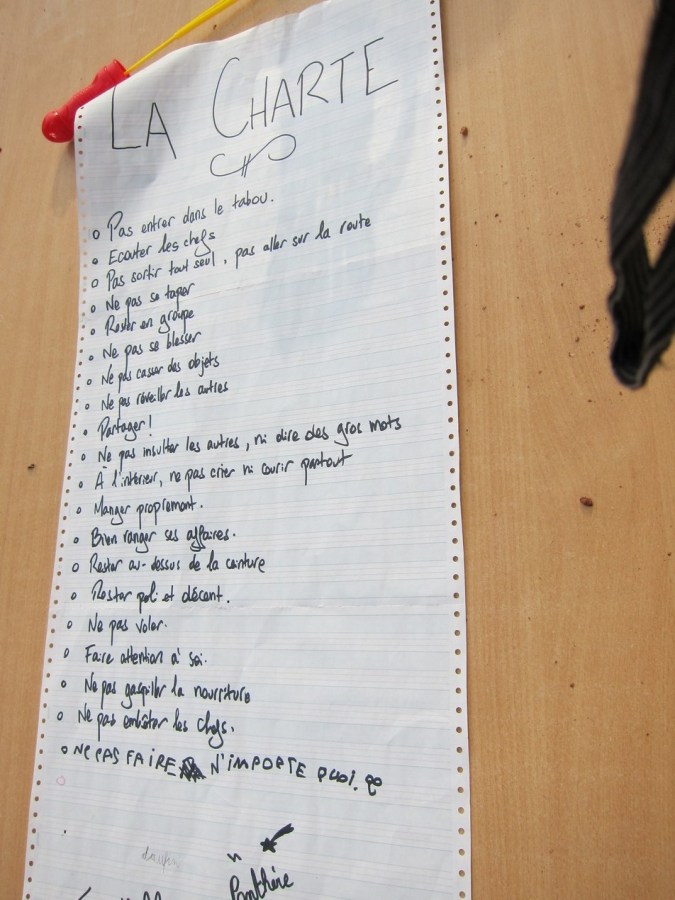 LA CHARTE
Pas entrer dans le tabou.
Ecouter les chefs
Pas sortir tout seul, pas aller sur la route
Ne pas se taper
Rester en groupe
Ne pas se blesser
Ne pas casser des objets
Ne pas réveiller les autres
Partager!
Ne pas insulter les autres, ni dire des gros mots
À l'intérieur, ne pas crier ni courir partout
Manger proprement.
Bien ranger ses affaires.
Rester au-dessus de la ceinture
Rester poli et décent.
Ne pas voler.
Faire attention à soi.
Ne pas gaspiller la nourriture
Ne pas embêter les chefs.
NE PAS FAIRE N'IMPORTE QUOI.
Panthère